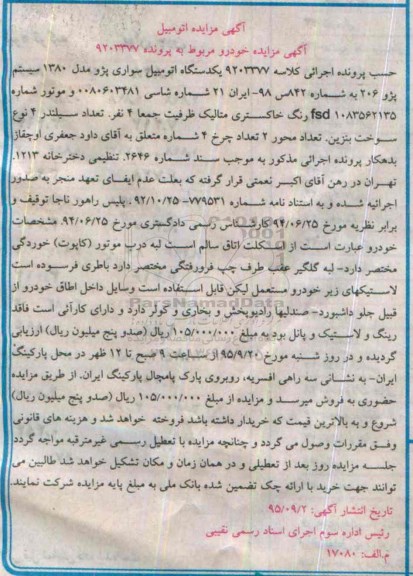 آگهی مزایده اتومبیل
آگهی مزایده خودرو مربوط به پرونده ۹۲۰۳۳۷۷
حسب پرونده اجرائی کلاسه ۹۲۰۳۳۷۷ یکدستگاه اتومبیل سواری پژو مدل ۱۳۸۰ سیستم
پژو ۲۰۶ به شماره ۸۴۲س ۹۸- ایران ۲۱ شماره شاسی ۰۰۸۰۶۰۳۴۸۱ و موتور شماره
fsd ۱۰۸۳۵۶۲۱۳۵ رنگ خاکستری متالیک ظرفیت جمعا ۴ نفر. تعداد سیلندر ۴ نوع
سوخت بنزین. تعداد محور ۲ تعداد چرخ ۴ شماره متعلق به آقای داود جعفری اوچقاز
بدهکار پرونده اجرائی مذکور به موجب سند شماره ۲۶۴۶. تنظیمی دفترخانه ۱۲۱۳.
تهران در رهن آقای اکبر نعمتی قرار گرفته که بعلت عدم ایفای تعهد منجر به صدور
اجرائیه شده و به استناد نامه شماره ۷۷۹۵۳۱-۹۲/۱۰/۲۵. پلیس راهور ناجا توقیف و
برابر نظریه مورخ ۹۴/۰۶/۲۵ کارشناس رسمی دادگستری مورخ ۹۴/۰۶/۲۵. مشخصات
خودرو عبارت است از اسکلت اتاق سالم است لبه درب موتور (کاپوت) خوردگی
مختصر دارد- لبه گلگیر عقب طرف چپ فرورفتگی مختصر دارد باطری فرسوده است
لاستیکهای زیر خودرو مستعمل لیکن قابل استفاده است وسایل داخل اطاق خودرو از
قبیل جلو داشبورد- صندلیها رادیوپخش و بخاری و کولر دارد و دارای کارآئی است فاقد
رینگ و لاستیک و پانل بود به مبلغ ۱۰۵/۰۰۰/۰۰۰ ریال (صدو پنج میلیون ریال) ارزیابی
گردیده و در روز شنبه مورخ ۹۵/۹/۲۰ از ساعت ۹ صبح تا ۱۲ ظهر در محل پارکینگ
ایران- به نشانی سه راهی افسریه، روبروی پارک پامچال پارکینگ ایران. از طریق مزایده
حضوری به فروش میرسد و مزایده از مبلغ ۱۰۵/۰۰۰/۰۰۰ ریال (صدو پنج میلیون ریال)
شروع و به بالاترین قیمت که خریدار داشته باشد فروخته خواهد شد و هزینه های قانونی
وفق مقررات وصول می گردد و چنانچه مزایده با تعطیل رسمی غیرمترقبه مواجه گردد
جلسه مزایده روز بعد از تعطیلی و در همان زمان و مکان تشکیل خواهد شد طالبین می
توانند جهت خرید با ارائه چک تضمین شده بانک ملی به مبلغ پایه مزایده شرکت نمایند.
تاریخ انتشار آگهی: ۹۵/۰۹/۲
رئیس اداره سوم اجرای اسناد رسمی نقیبی
م.الف: ۱۷۰۸۰